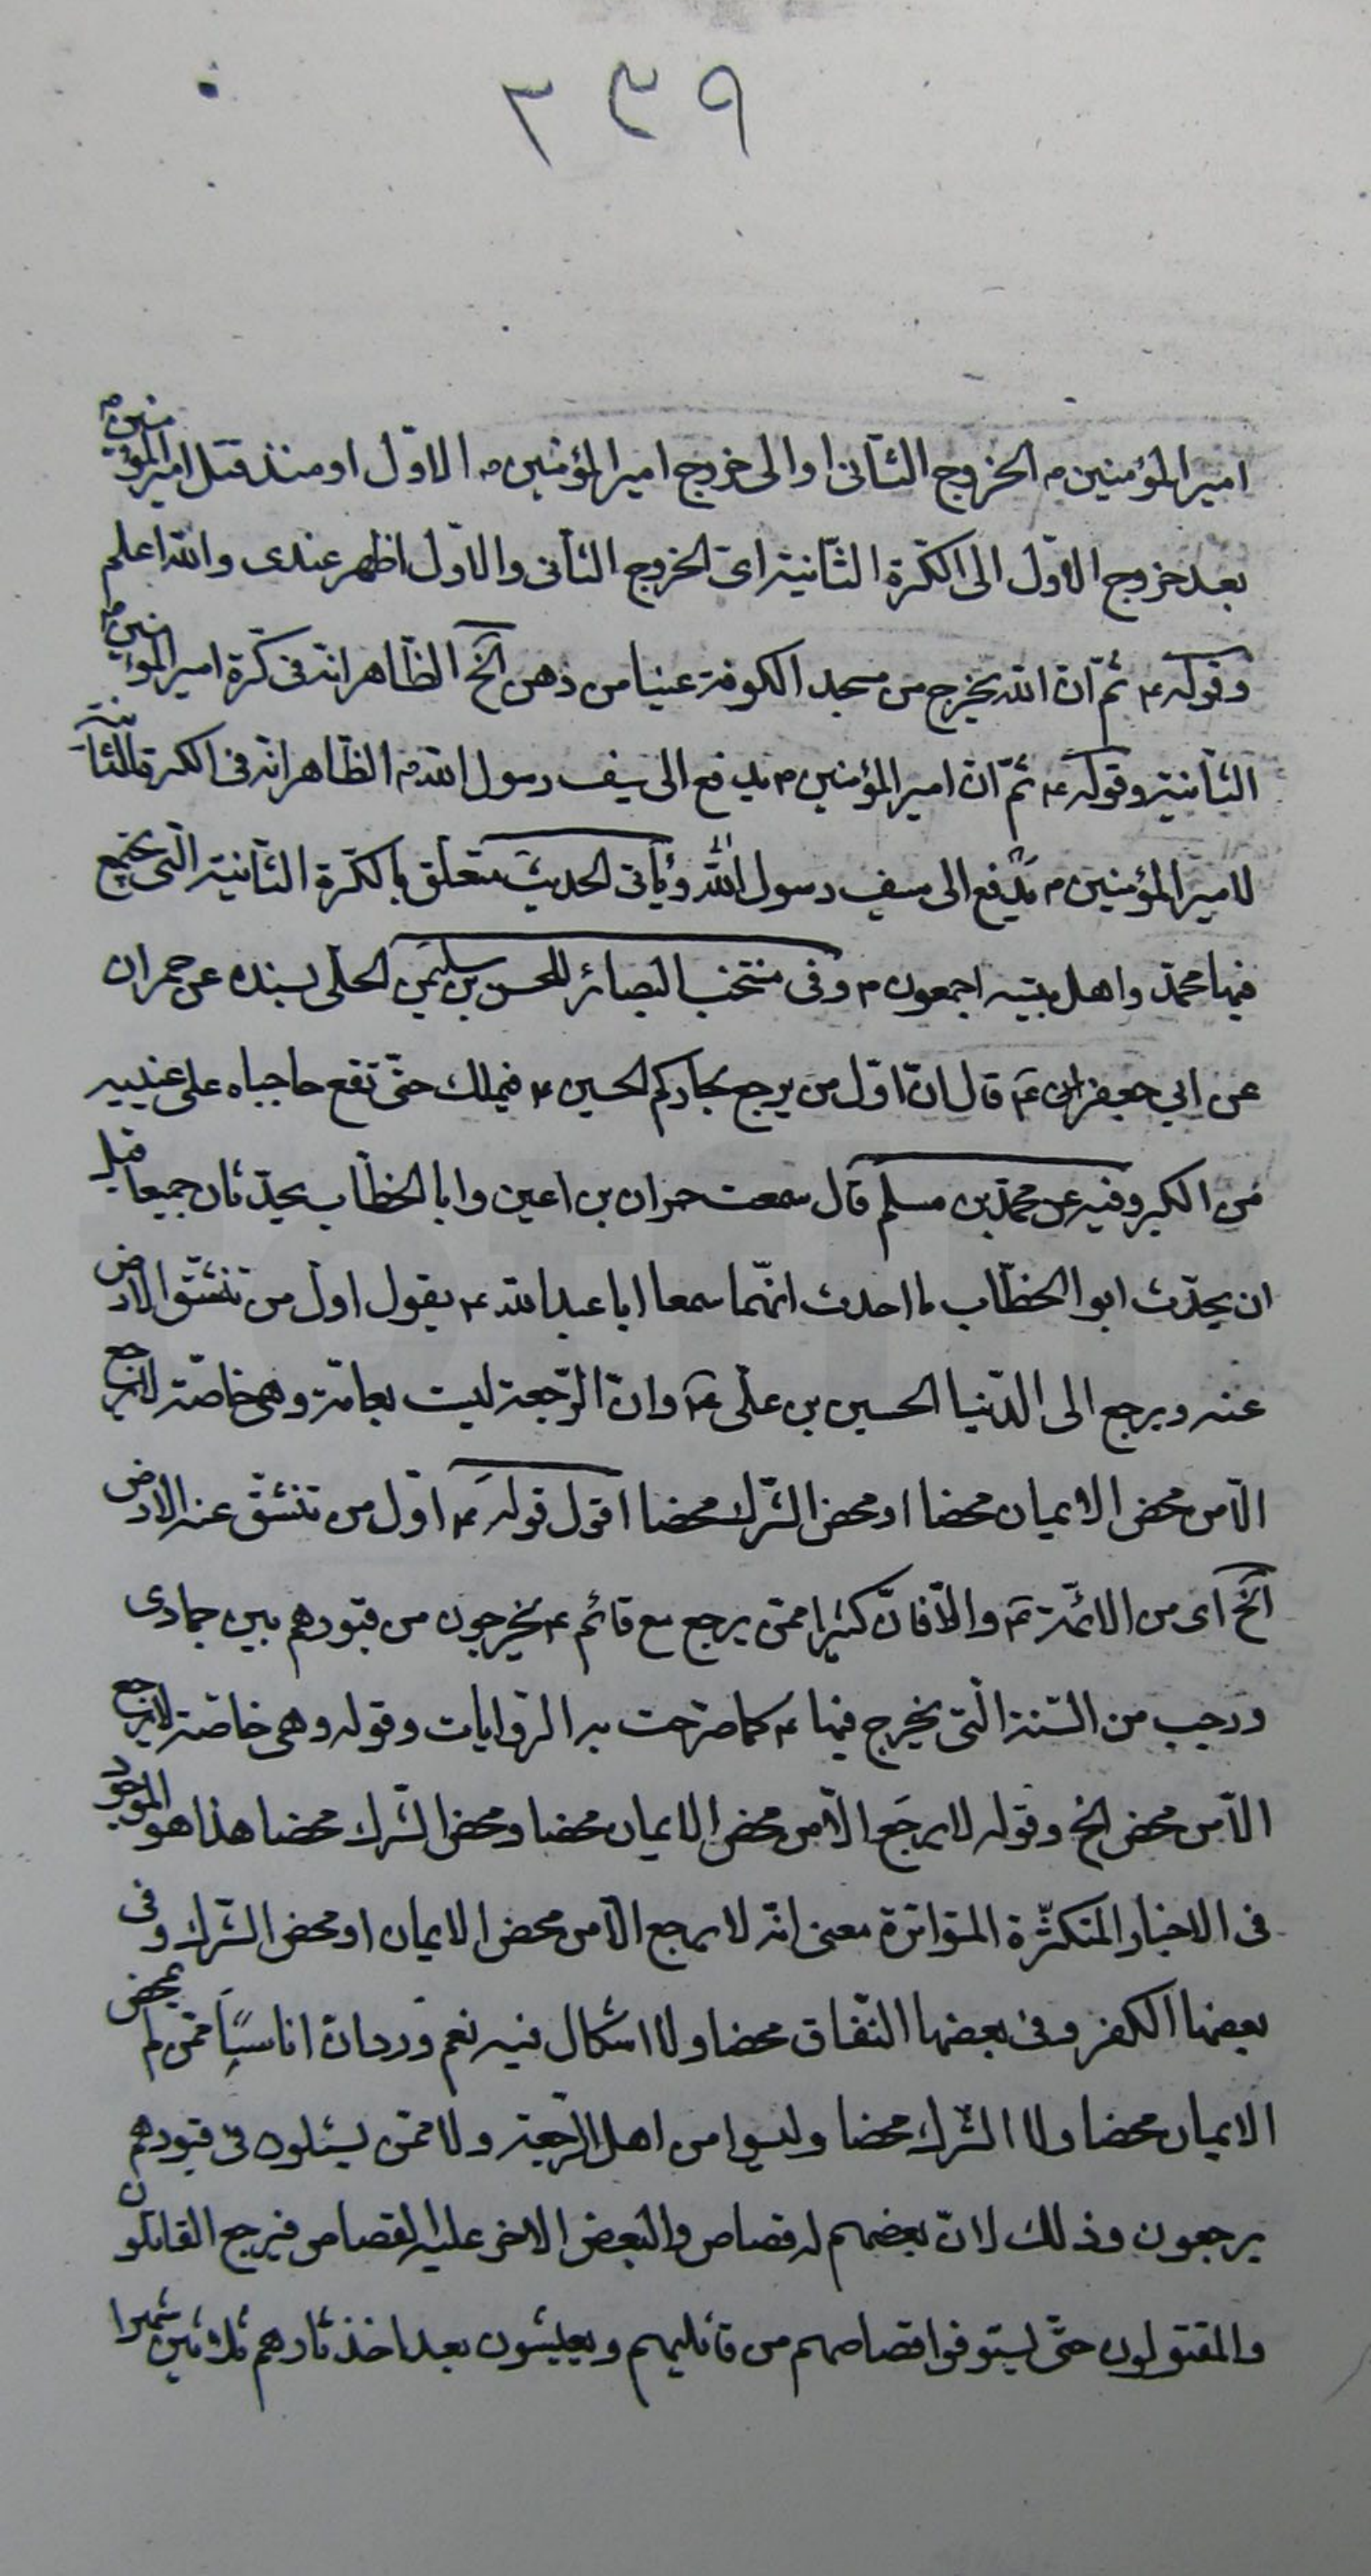 ٣٣٩
امير المؤمنين ع الخروج الثانى او الى خروج امير المؤمنين ع الاوّل او منذ قتل امير المؤمنين ع
بعد خروج الاوّل الى الكرّة الثّانية اى الخروج الثانى والاوّل اظهر عندى والله اعلم
وقوله ع ثمّ انّ الله يخرج من مسجد الكوفة عينا من دهن الخ الظّاهر انّه فى كرّة امير المؤمنين ع
الثانية وقوله ع ثمّ انّ امير المؤمنين ع يدفع الى سيف رسول الله ص الظّاهر انّه فى الكرة الثانية
لامير المؤمنين ع يدفع الى سيف رسول الله وياتى الحديث متعلّق بالكرّة الثّانية الّتى يجتمع
فيها محمّد واهل بيته اجمعون ع وفى منتخب البصائر للحسن بن سليمن الحلّى بسنده عن حمران
عن ابي جعفر ع قال انّ اوّل من يرجع لجاركم الحسين ع فيملك حتّى تقع حاجباه على عينيه
من الكبر وفيه عن محمّد بن مسلم قال سمعت حمران بن اعين وابا الخطّاب يحدّثان جميعا قبل
ان يحدّث ابو الخطّاب ما احدث انّهما سمعا ابا عبدالله ع يقول اوّل من تنشقّ الارض
عنه ويرجع الى الدّنيا الحسين بن علّى ع وانّ الرّجعة ليست بعامّة وهى خاصّة لا يرجع
الّا من محض الايمان محضا او محض الشّرك محضا اقول قوله ع اوّل من تنشقّ عنه الارض
الخ اى من الائمّة ع والّا فانّ كثيرا ممّن يرجع مع قائم ع يخرجون من قبورهم بين جمادى
ورجب من السّنة الّتى يخرج فيها ع كما صرّحت به الرّوايات وقوله وهى خاصّة لا يرجع
الّا من محض الخ وقوله لا يرجع الّا من محض الايمان محضا ومحض الشّرك محضا هذا هو الموجود
فى الاخبار المتكثّرة المتواترة معنى انّه لا يرجع الّا من محض الايمان او محض الشّرك وفى
بعضها الكفر وفى بعضها النّفاق محضا ولا اشكال فيه نعم ورد انّ اناسيّا ممّن لم يمحض
الايمان محضا ولا الشّرك محضا وليسوا من اهل الرّجعة ولا ممّن يسئلون فى قبورهم
يرجعون وذلك لانّ بعضهم له قصاص والبعض الاخر عليه القصاص فيرجع القاتلون
والمقتولون حتّى يستوفوا قصاصهم من قاتليهم ويعيشون بعد اخذ ثارهم ثلاثين شهرا